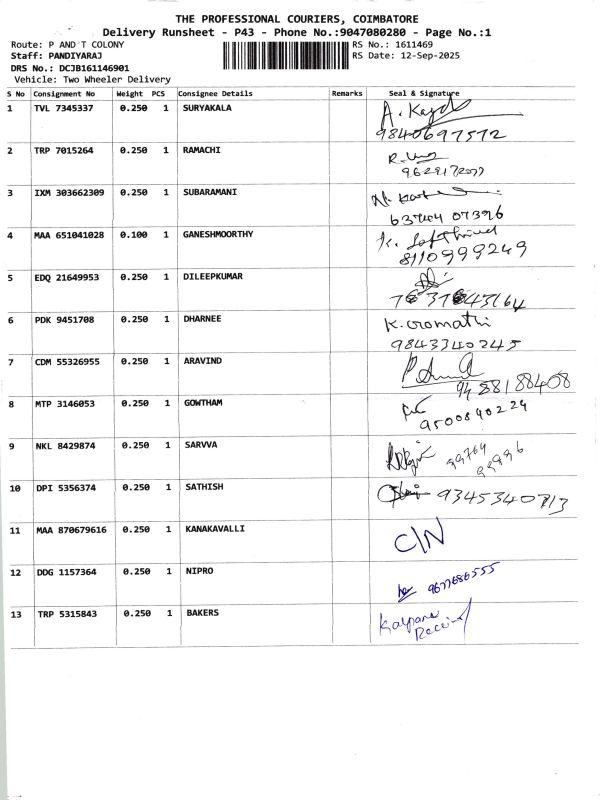 THE PROFESSIONAL COURIERS, COIMBATORE
Delivery Runsheet - P43 - Phone No.:9047080280 - Page No.:1
Route: P AND T COLONY RS No.: 1611469
Staff: PANDIYARAJ RS Date: 12-Sep-2025
DRS No.: DCJB161146901
Vehicle: Two Wheeler Delivery
S No Consignment No Weight PCS Consignee Details Remarks Seal & Signature
1 TVL 7345337 0.250 1 SURYAKALA
9840697572
2 TRP 7015264 0.250 1 RAMACHI
3 IXM 303662309 0.250 1 SUBARAMANI
4 MAA 651041028 0.100 1 GANESHMOORTHY
8110999249
5 EDQ 21649953 0.250 1 DILEEPKUMAR
6 PDK 9451708 0.250 1 DHARNEE
9843340245
7 CDM 55326955 0.250 1 ARAVIND
8 MTP 3146053 0.250 1 GOWTHAM
9500840224
9 NKL 8429874 0.250 1 SARVVA
10 DPI 5356374 0.250 1 SATHISH
11 MAA 870679616 0.250 1 KANAKAVALLI C/N
12 DDG 1157364 0.250 1 NIPRO 9677686555
13 TRP 5315843 0.250 1 BAKERS Kalpana